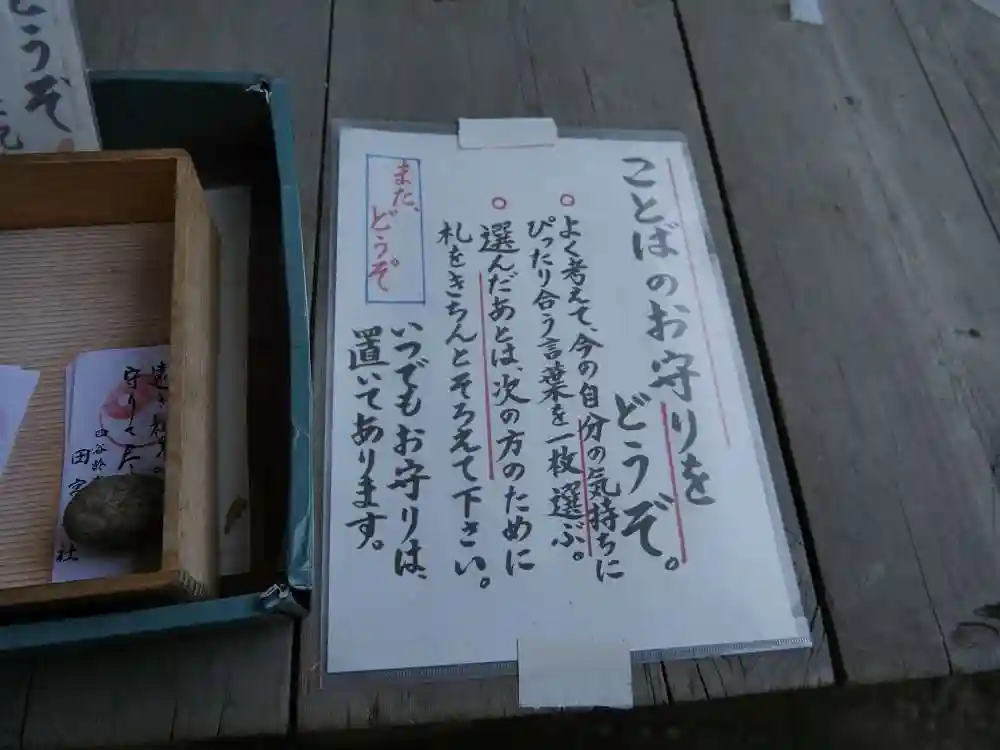 ことばのお守りを
どうぞ。
○よく考えて、今の自分の気持ちに
ぴったり合う言葉を一枚選ぶ。
○選んだあとは、次の方のために
札をきちんとそろえて下さい。
また、どうぞ
いつでもお守りは、
置いてあります。
どうぞ
守りて
田宮
社